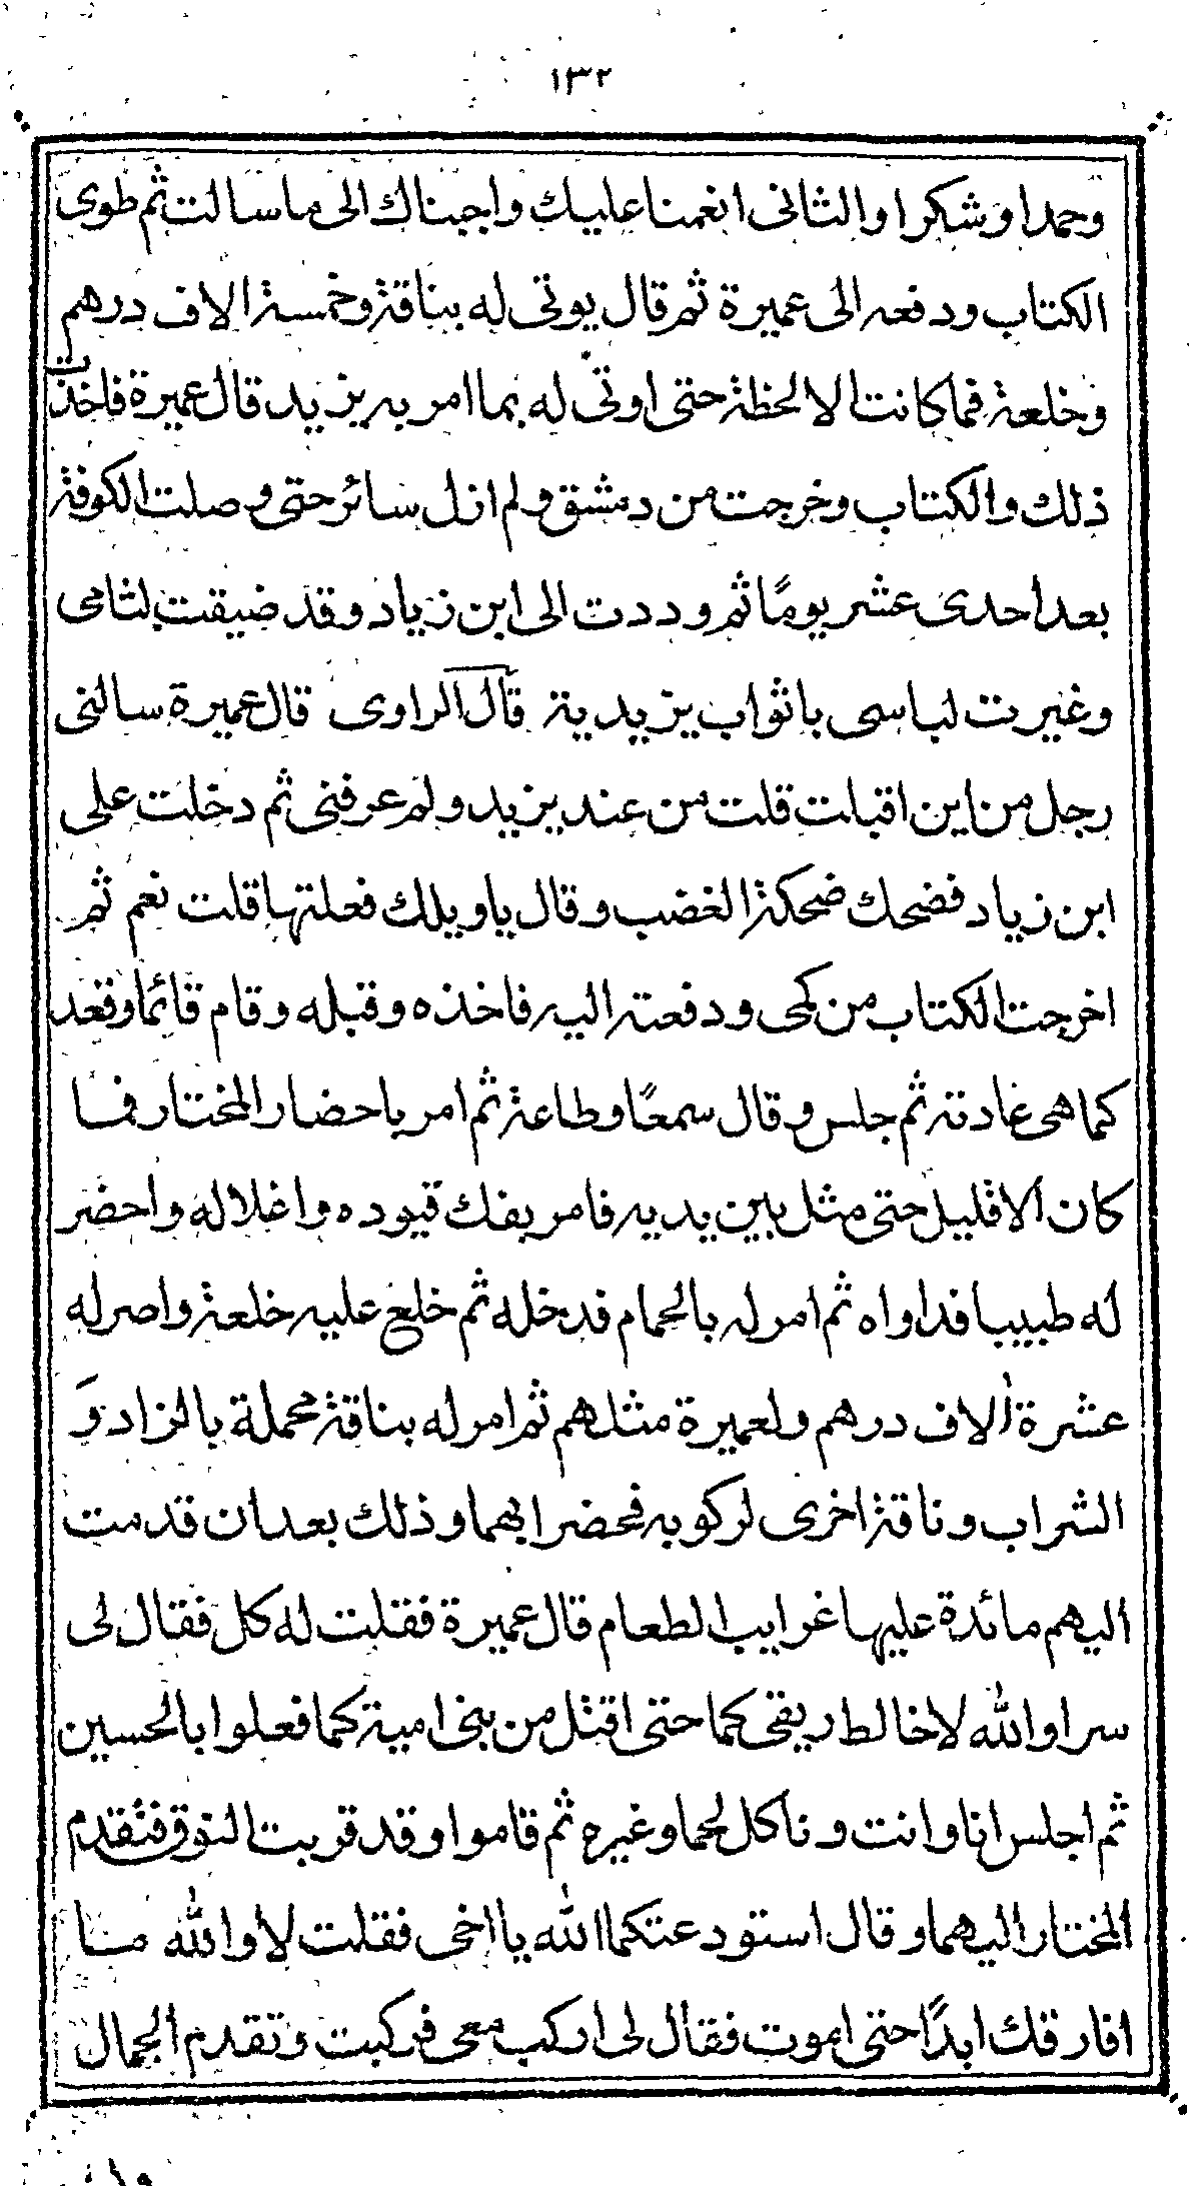 ١٣٢
وحمدا وشكرا والثانى انعمنا عليك واجبناك الى ما سالت ثم طوى
الكتاب ودفعه الى عميرة ثم قال يوتى له بناقة وخمسة الاف درهم
وخلعة فما كانت الا لحظة حتى اوتى له بما امر به يزيد قال عميرة فاخذت
ذلك والكتاب وخرجت من دمشق ولم ازل سائر حتى وصلت الكوفة
بعد احدى عشر يومًا ثم وددت الى ابن زياد وقد ضيقت لثامى
وغيرت لباسى باثواب يزيدية قال الراوى قال عميرة سالنى
رجل من اين اقبلت قلت من عند يزيد ولم عرفنى ثم دخلت على
ابن زياد فضحك ضحكة الغضب وقال ياويلك فعلتها قلت نعم ثم
اخرجت الكتاب من كمى ودفعته اليه فاخذه وقبله وقام قائما وقعد
كما هى عادته ثم جلس وقال سمعًا وطاعة ثم امر باحضار المختار فما
كان الا قليل حتى مثل بين يديه فامر بفك قيوده واغلاله واحضر
له طبيبا فداواه ثم امر له بالحمام فدخله ثم خلع عليه خلعة وامر له
عشرة الاف درهم ولعميرة مثلهم ثم امر له بناقة محملة بالزاد و
الشراب وناقة اخرى لركوبه فحضر ابهما وذلك بعد ان قدمت
اليهم مائدة عليها غرايب الطعام قال عميرة فقلت له كل فقال لى
سرا والله لا خالط ريقى كما حتى اقتل من بنى امية كما فعلوا بالحسين
ثم اجلس انا وانت وناكل لحما وغيره ثم قاموا وقد قربت النوق فتقدم
المختار اليهما وقال استودعتكما الله يا اخى فقلت لا والله منا
افارقك ابدًا حتى اموت فقال لى اركب معى فركبت وتقدم الجمال